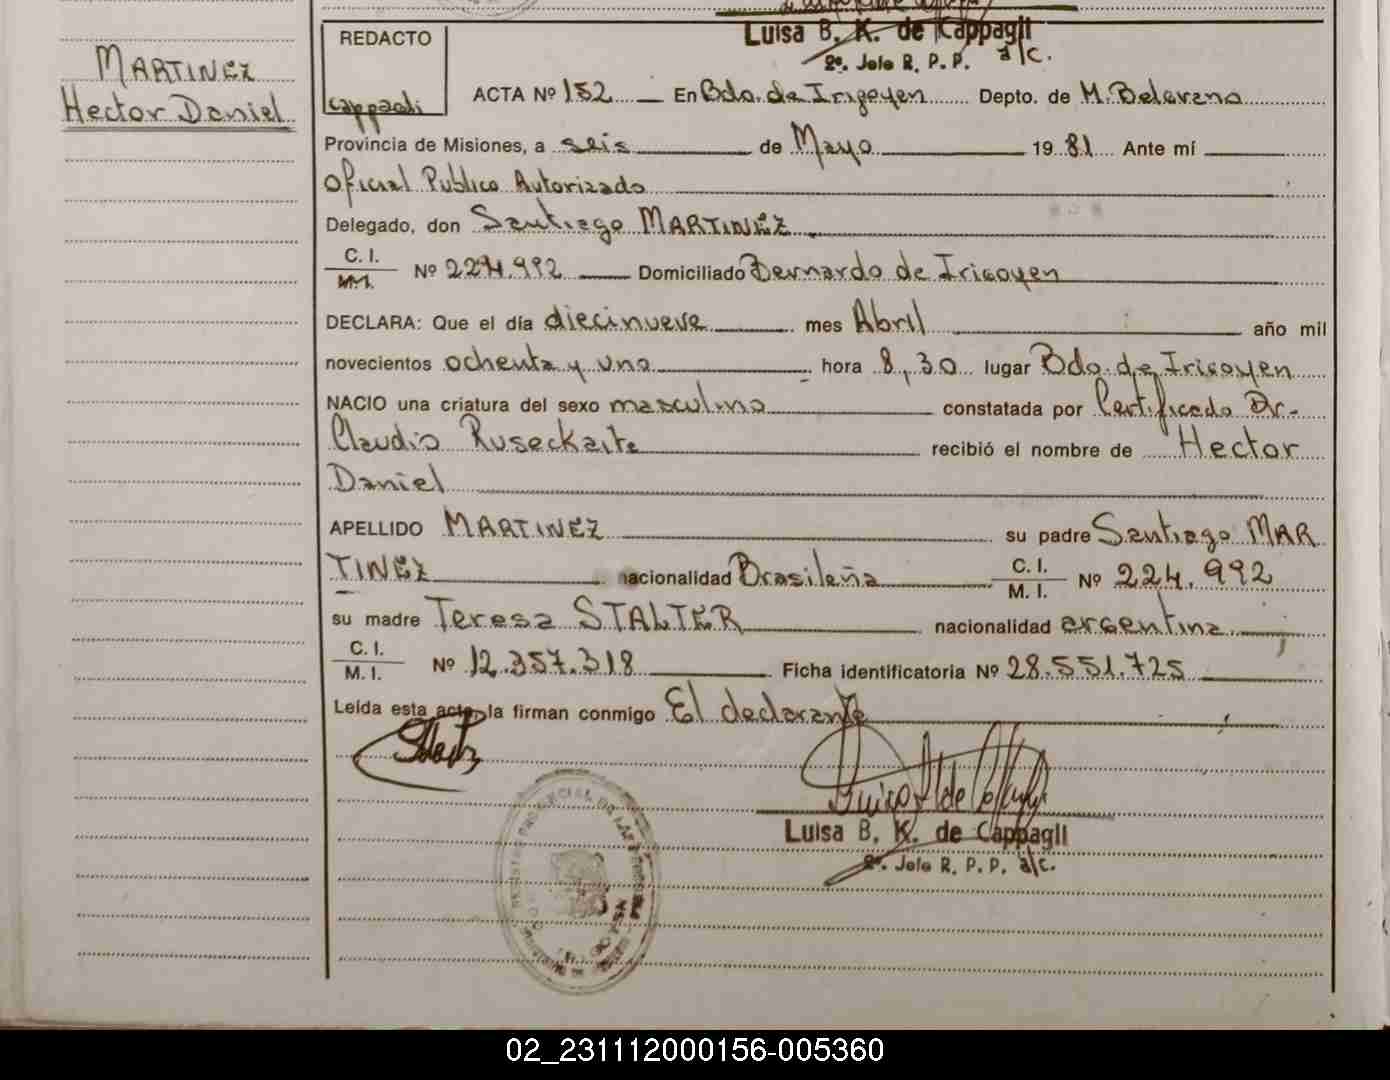 Luisa B. K. de Cappagli
2º. Jefe R. P. P. a/c.
MARTINEZ
Hector Daniel
REDACTO
Cappagli
ACTA Nº 152 En Bdo. de Irigoyen Depto. de M. Belgrano
Provincia de Misiones, a seis de Mayo 1981 Ante mí
Oficial Publico Autorizado
Delegado, don Santiago MARTINEZ
C. I.
M. I. Nº 224.992 Domiciliado Bernardo de Irigoyen
DECLARA: Que el día diecinueve mes Abril año mil
novecientos ochenta y uno hora 8,30 lugar Bdo. de Irigoyen
NACIO una criatura del sexo masculino constatada por Certificado Dr.
Claudio Ruseckaite recibió el nombre de Hector
Daniel
APELLIDO MARTINEZ su padre Santiago MAR
TINEZ nacionalidad Brasileña C. I.
M. I. Nº 224.992
su madre Teresa STALTER nacionalidad argentina
C. I.
M. I. Nº 12.357.318 Ficha identificatoria Nº 28.551.725
Leída esta acta, la firman conmigo El declarante
Luisa B. K. de Cappagli
2º. Jefe R. P. P. a/c.
02_231112000156-005360